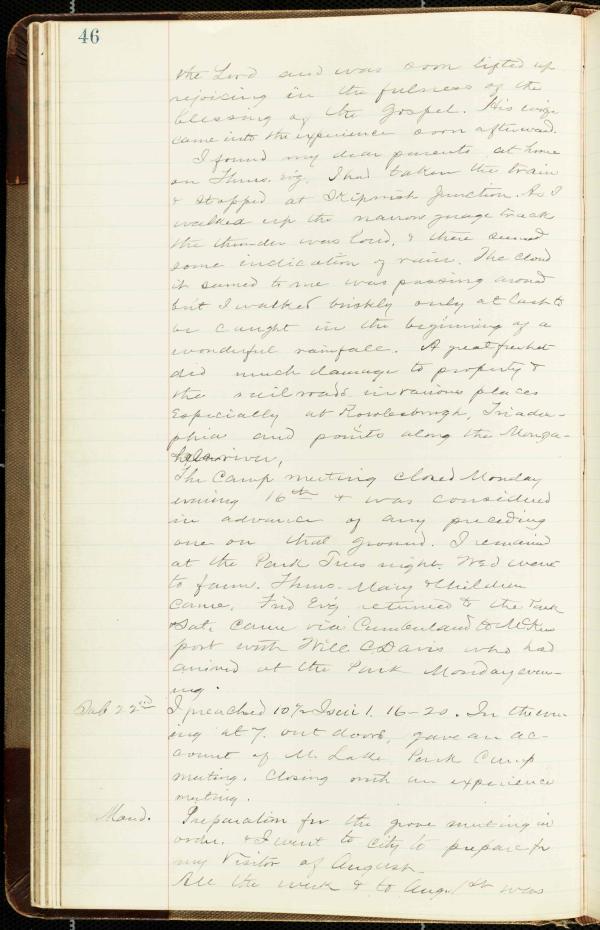 46
the Lord and was soon lifted up
rejoicing in the fulness of the
blessing of the Gospel. His wife
came into the experience soon afterward.
I found my dear parents at home
on Thurs. evg. I had taken the train
& stopped at Junction. As I
walked up the narrow guage track
the thunder was loud, & there seemed
some indication of rain. The cloud
it seemed to me was passing around
but I walked briskly only at last to
be caught in the beginning of a
wonderful rainfall. A great freshet
did much damage to property &
the railroads in various places
Especially at Rowlesburgh, Triadel-
phia and points along the Monga-
hela river,
The Camp meeting closed Monday
evening 16th & was considered
in advance of any preceding
one on that ground. I remained
at the Park Tues night. Wed went
to farm. Thurs. Mary & children
came. Frid Ev'g returned to the Park
Sat. came via Cumberland to McKees
port with Will C Davis who had
arrived at the Park Monday even-
ing.
Sab 22nd I preached 10½ Isai 1. 16-20. In the eve-
ing at 7. out doors, gave an ac-
count of Mt. Lake Park Camp
meeting. Closing with an experience
meeting.
Mond. Preparation for the grove meeting in
order. & I went to City to prepare for
my Visitor of August.
All the week & to Aug. 1st was